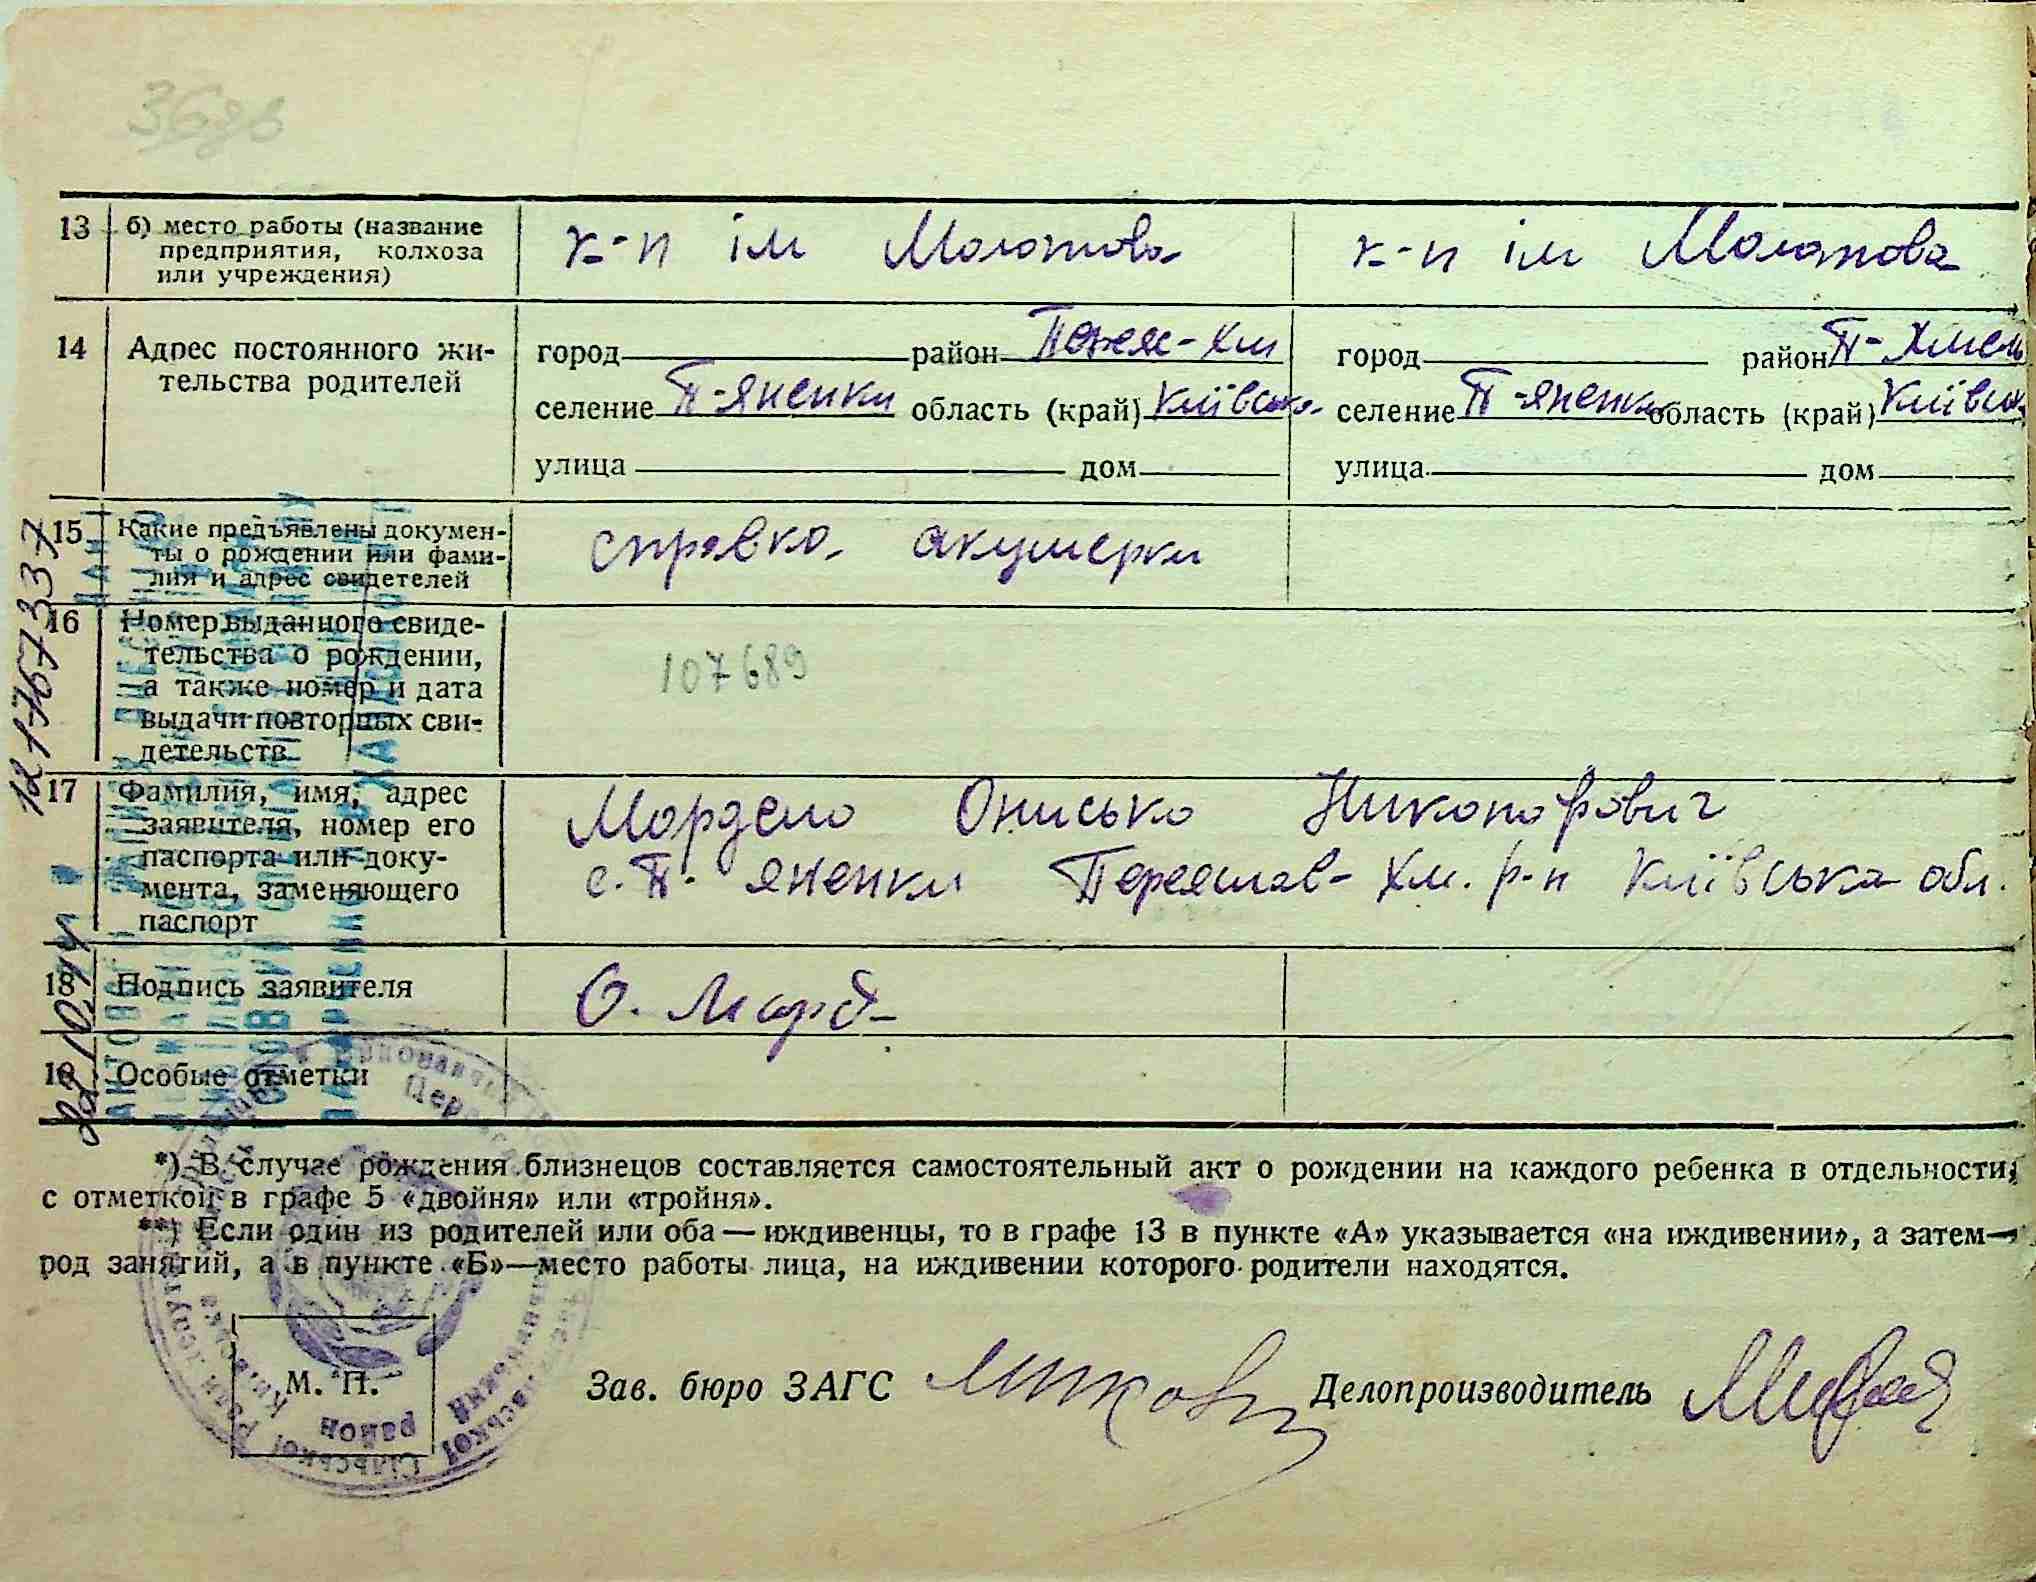 13 б) место работы (название
предприятия, колхоза
или учреждения)
к-п ім Молотова
к-п ім Молотова
14 Адрес постоянного жи-
тельства родителей
город район Переяс-Хм
селение П-яненки область (край) Київська
улица дом
город район П-Хмель
селение П-яненки область (край) Київська
улица дом
15 Какие предъявлены докумен-
ты о рождении или фами-
лия и адрес свидетелей
справка акушерки
16 Номер выданного свиде-
тельства о рождении,
а также номер и дата
выдачи повторных сви-
детельств
107689
17 Фамилия, имя, адрес
заявителя, номер его
паспорта или доку-
мента, заменяющего
паспорт
Онисько Никопорович
с. П- яненки Переяслав- Хм. р-н Київська обл.
18 Подпись заявителя
О. Морд
19 Особые отметки
*) В случае рождения близнецов составляется самостоятельный акт о рождении на каждого ребенка в отдельности,
с отметкой в графе 5 «двойня» или «тройня».
**) Если один из родителей или оба — иждивенцы, то в графе 13 в пункте «А» указывается «на иждивении», а затем—
род занятий, а в пункте «Б»—место работы лица, на иждивении которого родители находятся.
М. П.
район
Зав. бюро ЗАГС
Делопроизводитель